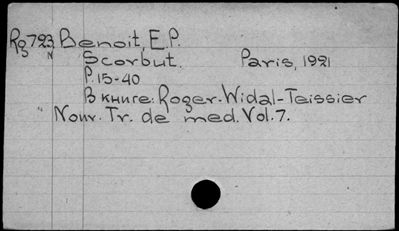 Rg723 Benoit, E.P.
N Scorbut. Paris, 1921
P. 15-40
В книге: Roger-Widal-Teissier
Nouv. Tr. de med. Vol. 7.